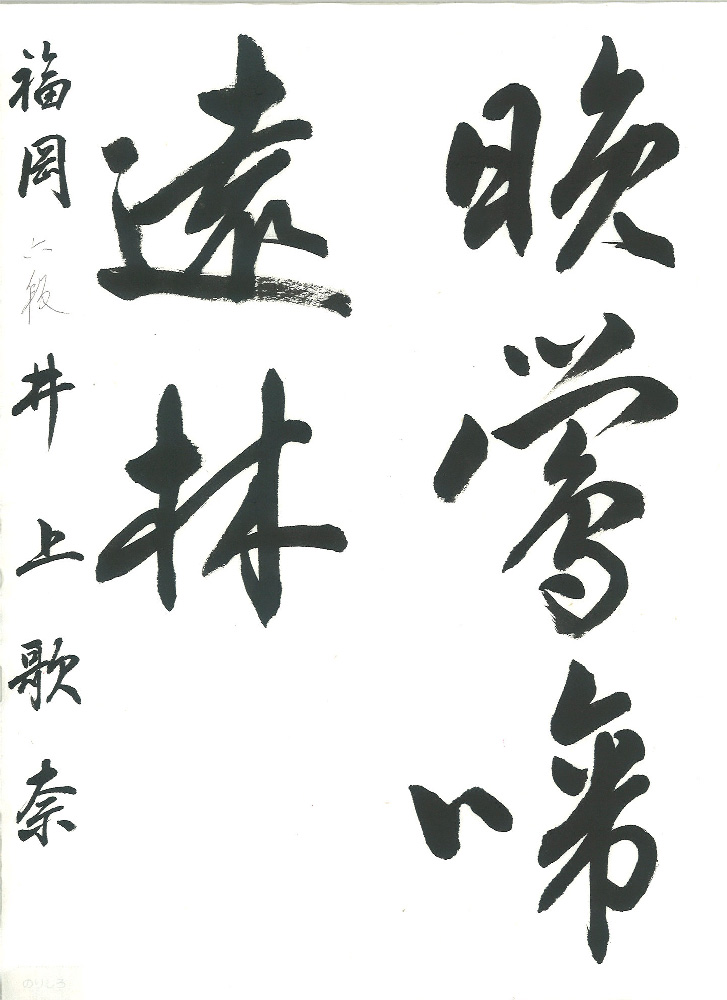 晩鶯啼
遠林
福岡 六段 井上歌奈
のりしろ